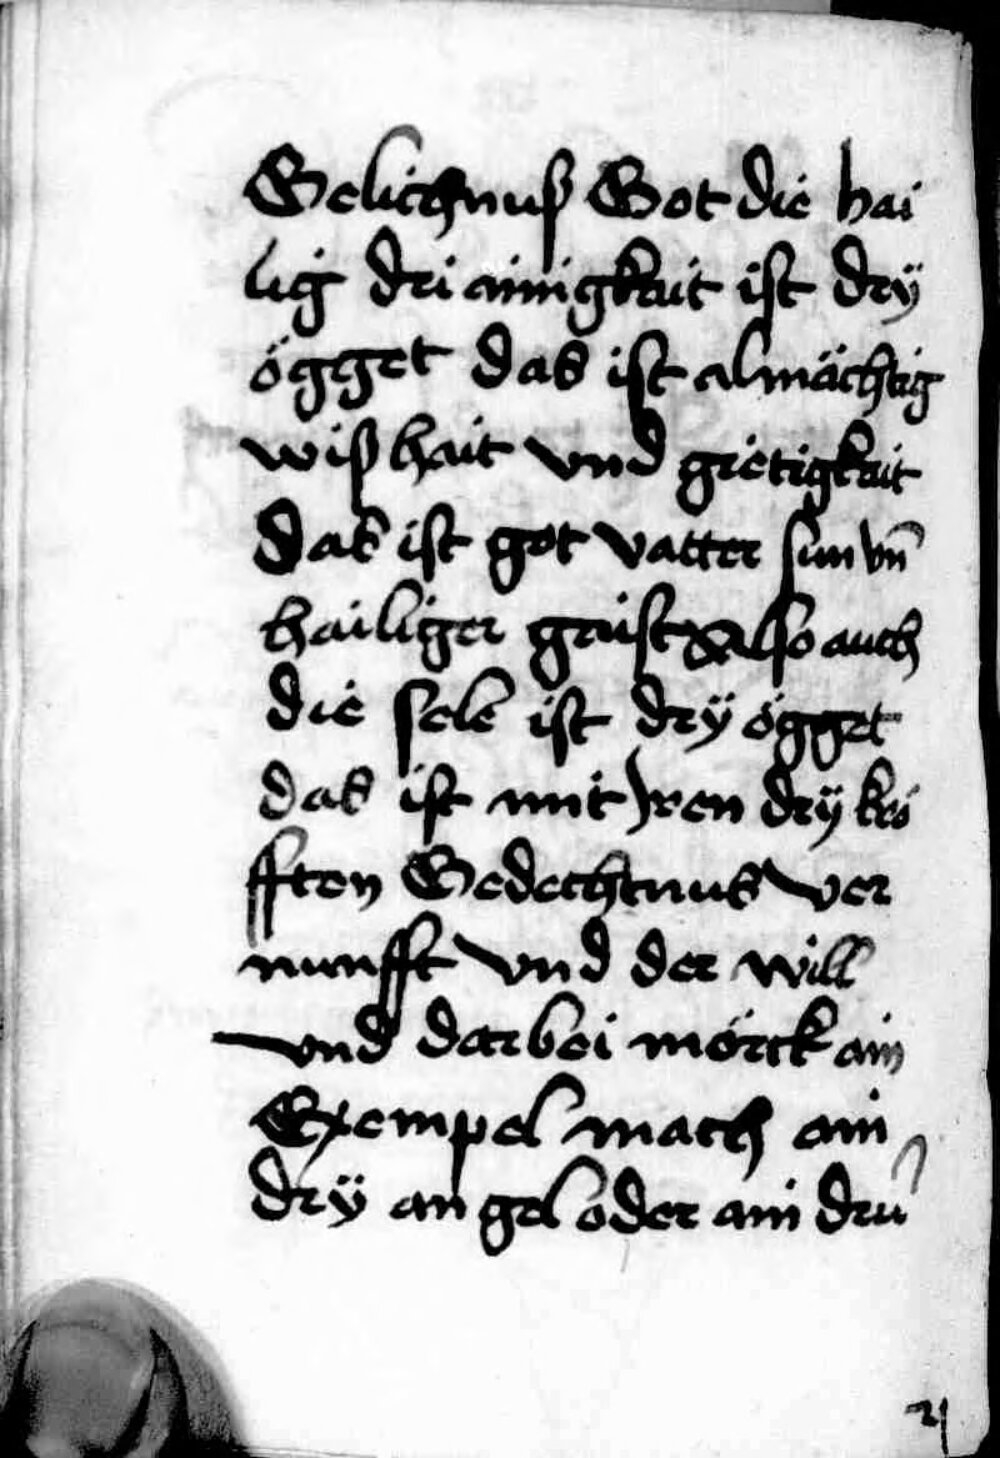 Gelichnuß Got die hai
lig dri ainigkait ist drÿ
ögget das ist almächtig
wißhait vnd gietigkait
Das ist got vatter sun vn̄
hailiger gaist also auch
die sele ist drÿ ögget
das ist mit Jren drÿ krö
fften Gedechtnus ver
nunfft vnd der will
vnd darbei mörck ain
Exempel mach ain
drÿ angel oder ain dru
21